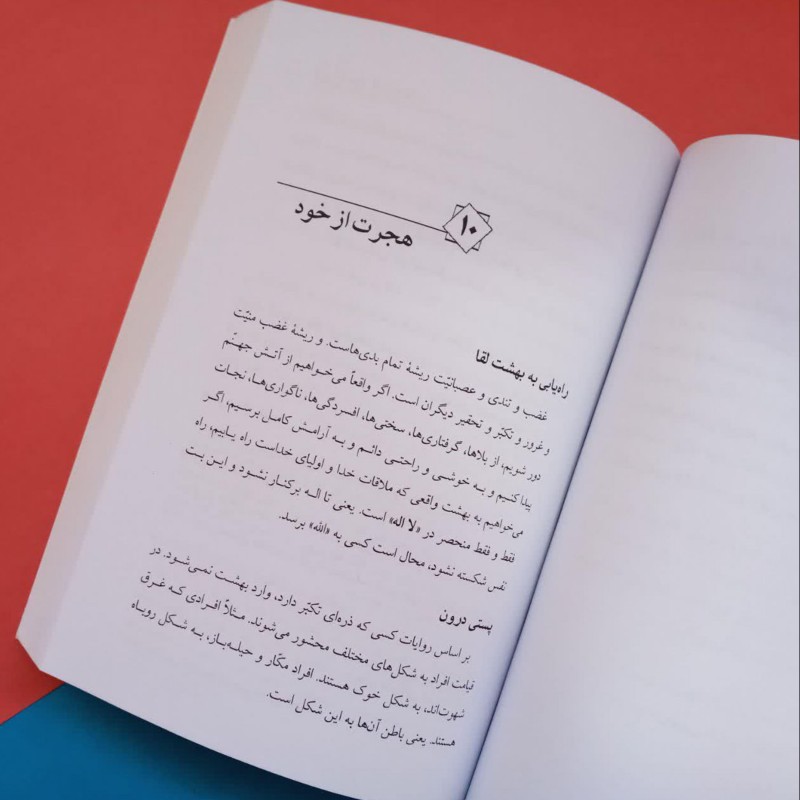 ۱۰
هجرت از خود
راه‌یابی به بهشت لقا
غضب و تندی و عصبانیّت ریشهٔ تمام بدی‌هاست. و ریشهٔ غضب منیّت
و غرور و تکبّر و تحقیر دیگران است. اگر واقعاً می‌خواهیم از آتش جهنّم
دور شویم، از بلاها، گرفتاری‌ها، سختی‌ها، افسردگی‌ها، ناگواری‌ها، نجات
پیدا کنیم و به خوشی و راحتی دائم و به آرامش کامل برسیم، اگر
می‌خواهیم به بهشت واقعی که ملاقات خدا و اولیای خداست راه یابیم، راه
فقط و فقط منحصر در «لا اله» است. یعنی تا اله برکنار نشود و این بت
نفس شکسته نشود، محال است کسی به «الله» برسد.
پستی درون
بر اساس روایات کسی که ذره‌ای تکبّر دارد، وارد بهشت نمی‌شود. در
قیامت افراد به شکل‌های مختلف محشور می‌شوند. مثلاً افرادی که غرق
شهوت‌اند، به شکل خوک هستند. افراد مکّار و حیله‌باز، به شکل روباه
هستند. یعنی باطن آن‌ها به این شکل است.